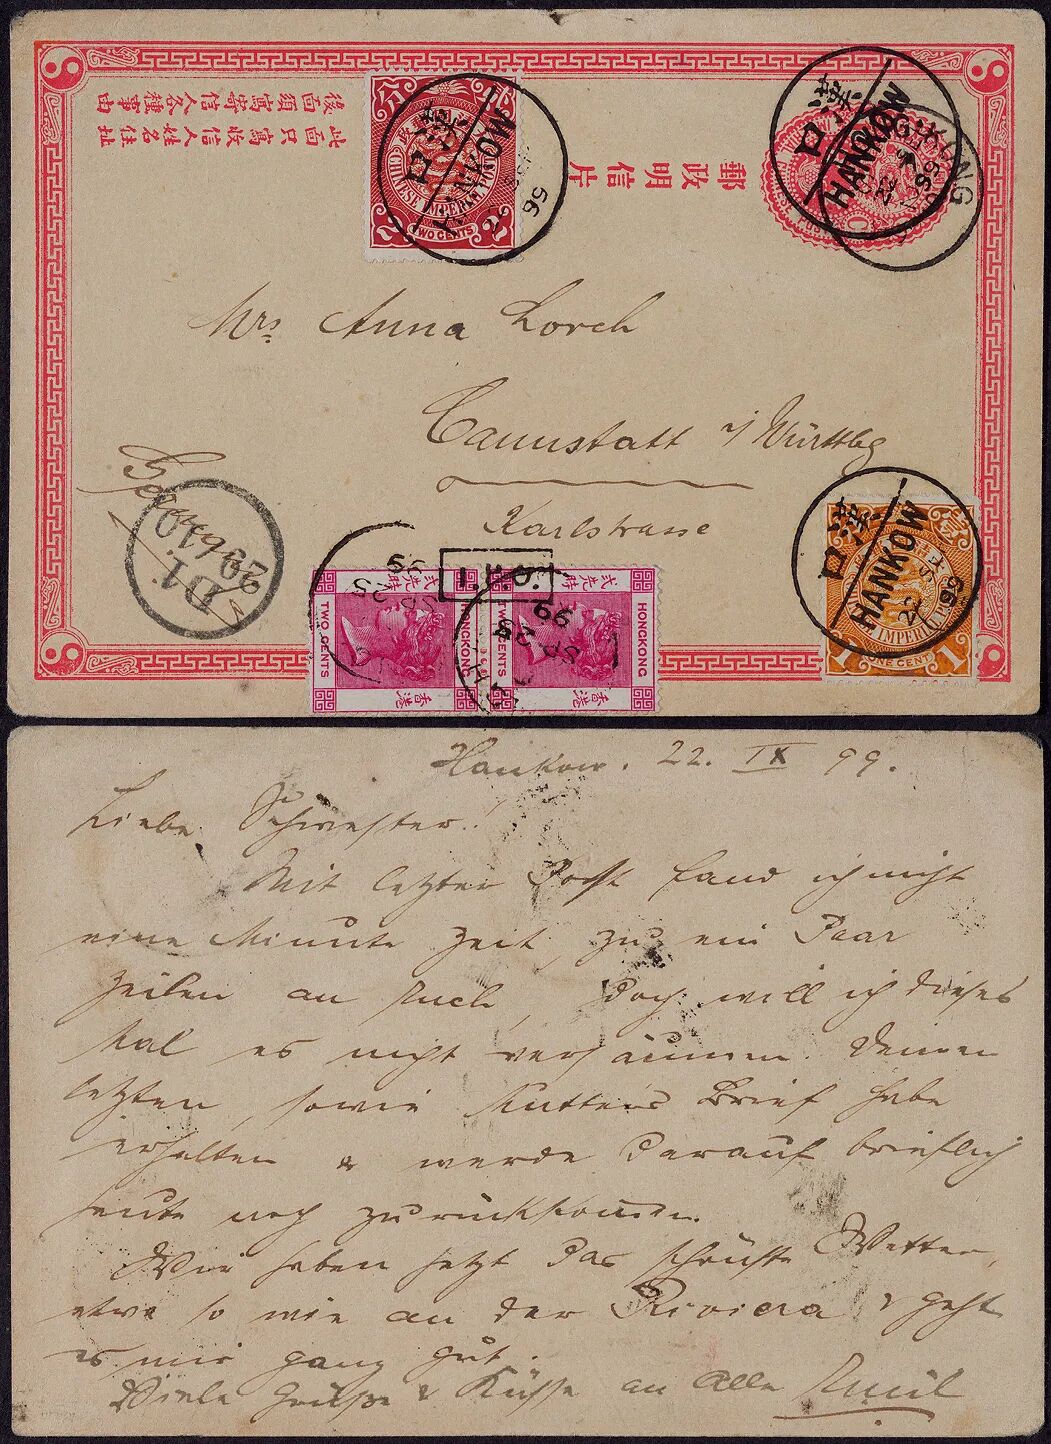 此面只寫收信人姓名住址
後面須寫寄信人各種事由
郵政明信片
CHINESE IMPERIAL POST
TWO CENTS
2
漢口
HANKOW
22 SEP 99
漢口
HANKOW
22 SEP 99
Mrs. Anna Lorch
Cannstatt i/ Württbg
Karlstrasse
Germany
D1.
I.P.O.
HONGKONG
TWO CENTS
香港
HONGKONG
TWO CENTS
香港
漢口
HANKOW
22 SEP 99
IMPERIAL
1 ONE CENT 1
Hankow. 22. IX 99.
Liebe Schwester!
Mit letzter Post fand ich nicht
eine Minute Zeit, zu ein Paar
Zeilen an Euch, doch will ich dieses
Mal es nicht versäumen. Deinen
letzten, sowie Mutters Brief habe
erhalten & werde darauf brieflich
heute noch zurückkommen.
Wir haben jetzt das schönste Wetter,
etwa so wie an der Riviera & geht
es mir ganz gut.
Viele Grüsse & Küsse an Alle Emil